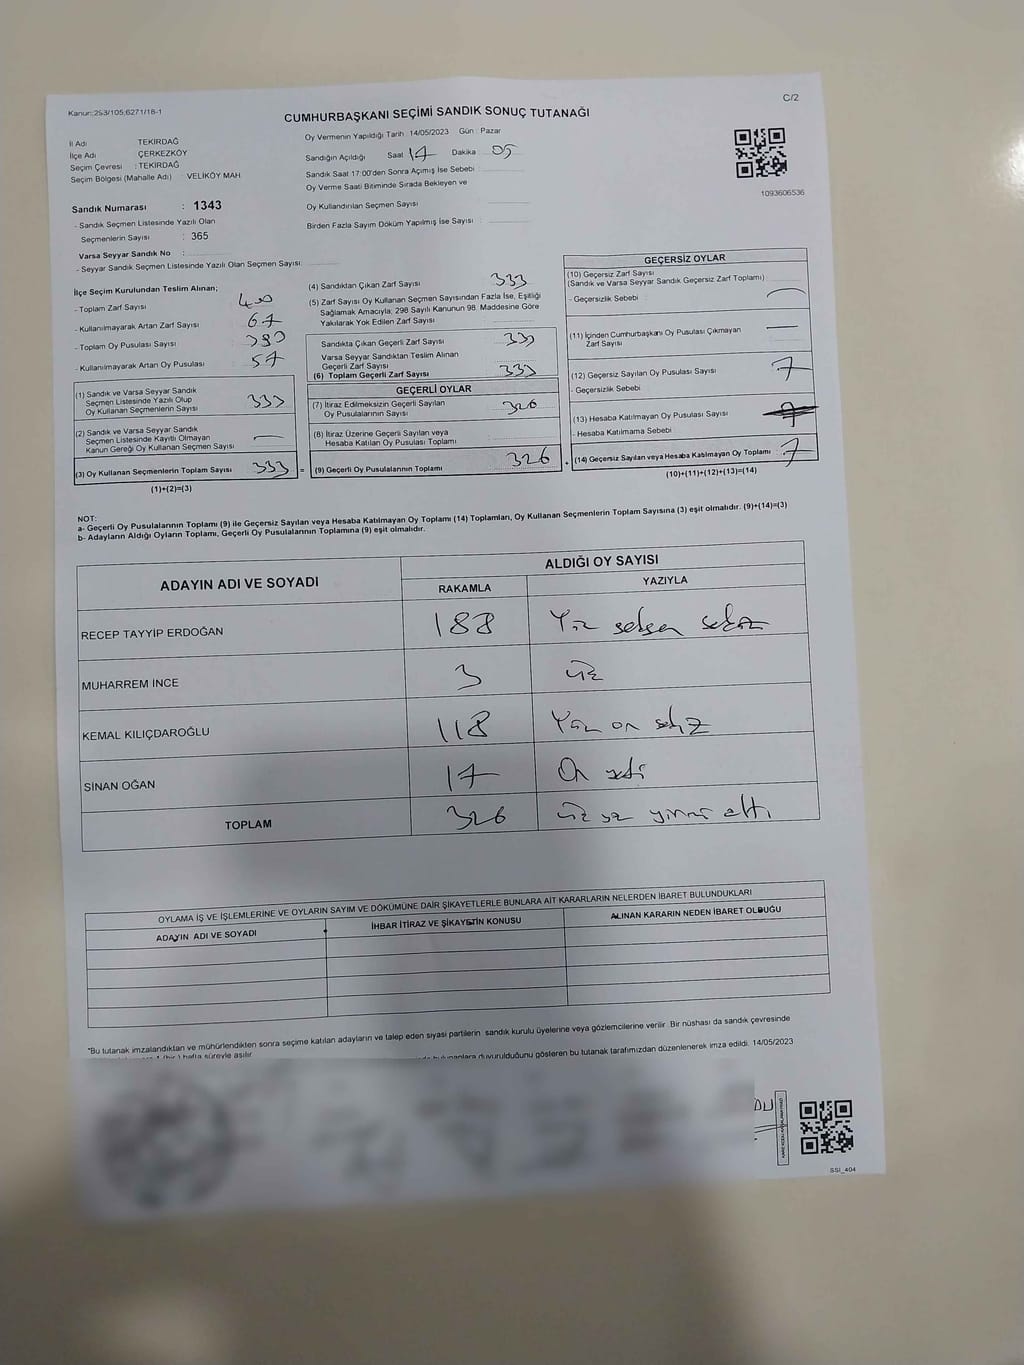 Kanun:298/105,6271/18-1
C/2
CUMHURBAŞKANI SEÇİMİ SANDIK SONUÇ TUTANAĞI
İl Adı TEKİRDAĞ
İlçe Adı ÇERKEZKÖY
Seçim Çevresi : TEKİRDAĞ
Seçim Bölgesi (Mahalle Adı) : VELİKÖY MAH.
Sandık Numarası : 1343
- Sandık Seçmen Listesinde Yazılı Olan
Seçmenlerin Sayısı : 365
Varsa Seyyar Sandık No :
- Seyyar Sandık Seçmen Listesinde Yazılı Olan Seçmen Sayısı:
Oy Vermenin Yapıldığı Tarih 14/05/2023 Gün : Pazar
Sandığın Açıldığı Saat 17 Dakika 05
Sandık Saat 17:00'den Sonra Açımış İse Sebebi :
Oy Verme Saati Bitiminde Sırada Bekleyen ve
Oy Kullandırılan Seçmen Sayısı
Birden Fazla Sayım Döküm Yapılmış İse Sayısı :
1093606536
İlçe Seçim Kurulundan Teslim Alınan;
- Toplam Zarf Sayısı 400
- Kullanılmayarak Artan Zarf Sayısı 67
- Toplam Oy Pusulası Sayısı 390
- Kullanılmayarak Artan Oy Pusulası 57
(1) Sandık ve Varsa Seyyar Sandık
Seçmen Listesinde Yazılı Olup
Oy Kullanan Seçmenlerin Sayısı 333
(2) Sandık ve Varsa Seyyar Sandık
Seçmen Listesinde Kayıtlı Olmayan
Kanun Gereği Oy Kullanan Seçmen Sayısı —
(3) Oy Kullanan Seçmenlerin Toplam Sayısı 333 =
(1)+(2)=(3)
(4) Sandıktan Çıkan Zarf Sayısı 333
(5) Zarf Sayısı Oy Kullanan Seçmen Sayısından Fazla İse, Eşitliği
Sağlamak Amacıyla; 298 Sayılı Kanunun 98. Maddesine Göre
Yakılarak Yok Edilen Zarf Sayısı
Sandıkta Çıkan Geçerli Zarf Sayısı 333
Varsa Seyyar Sandıktan Teslim Alınan
Geçerli Zarf Sayısı
(6) Toplam Geçerli Zarf Sayısı 333
GEÇERLİ OYLAR
(7) İtiraz Edilmeksizin Geçerli Sayılan
Oy Pusulalarının Sayısı 326
(8) İtiraz Üzerine Geçerli Sayılan veya
Hesaba Katılan Oy Pusulası Toplamı
(9) Geçerli Oy Pusulalarının Toplamı 326 +
GEÇERSİZ OYLAR
(10) Geçersiz Zarf Sayısı
(Sandık ve Varsa Seyyar Sandık Geçersiz Zarf Toplamı) :
- Geçersizlik Sebebi : —
(11) İçinden Cumhurbaşkanı Oy Pusulası Çıkmayan
Zarf Sayısı —
(12) Geçersiz Sayılan Oy Pusulası Sayısı 7
- Geçersizlik Sebebi :
(13) Hesaba Katılmayan Oy Pusulası Sayısı
- Hesaba Katılmama Sebebi :
(14) Geçersiz Sayılan veya Hesaba Katılmayan Oy Toplamı : 7
(10)+(11)+(12)+(13)=(14)
NOT:
a- Geçerli Oy Pusulalarının Toplamı (9) ile Geçersiz Sayılan veya Hesaba Katılmayan Oy Toplamı (14) Toplamları, Oy Kullanan Seçmenlerin Toplam Sayısına (3) eşit olmalıdır. (9)+(14)=(3)
b- Adayların Aldığı Oyların Toplamı, Geçerli Oy Pusulalarının Toplamına (9) eşit olmalıdır.
ADAYIN ADI VE SOYADI ALDIĞI OY SAYISI
RAKAMLA YAZIYLA
RECEP TAYYİP ERDOĞAN 188 Yüz seksen sekiz
MUHARREM İNCE 3 üç
KEMAL KILIÇDAROĞLU 118 Yüz on sekiz
SİNAN OĞAN 17 On yedi
TOPLAM 326 üç yüz yirmi altı
OYLAMA İŞ VE İŞLEMLERİNE VE OYLARIN SAYIM VE DÖKÜMÜNE DAİR ŞİKAYETLERLE BUNLARA AİT KARARLARIN NELERDEN İBARET BULUNDUKLARI
ADAYIN ADI VE SOYADI İHBAR İTİRAZ VE ŞİKAYETİN KONUSU ALINAN KARARIN NEDEN İBARET OLDUĞU
*Bu tutanak imzalandıktan ve mühürlendikten sonra seçime katılan adayların ve talep eden siyasi partilerin sandık kurulu üyelerine veya gözlemcilerine verilir. Bir nüshası da sandık çevresinde
hafta süreyle asılır. duyurulduğunu gösteren bu tutanak tarafımızdan düzenlenerek imza edildi. 14/05/2023
SSI_404